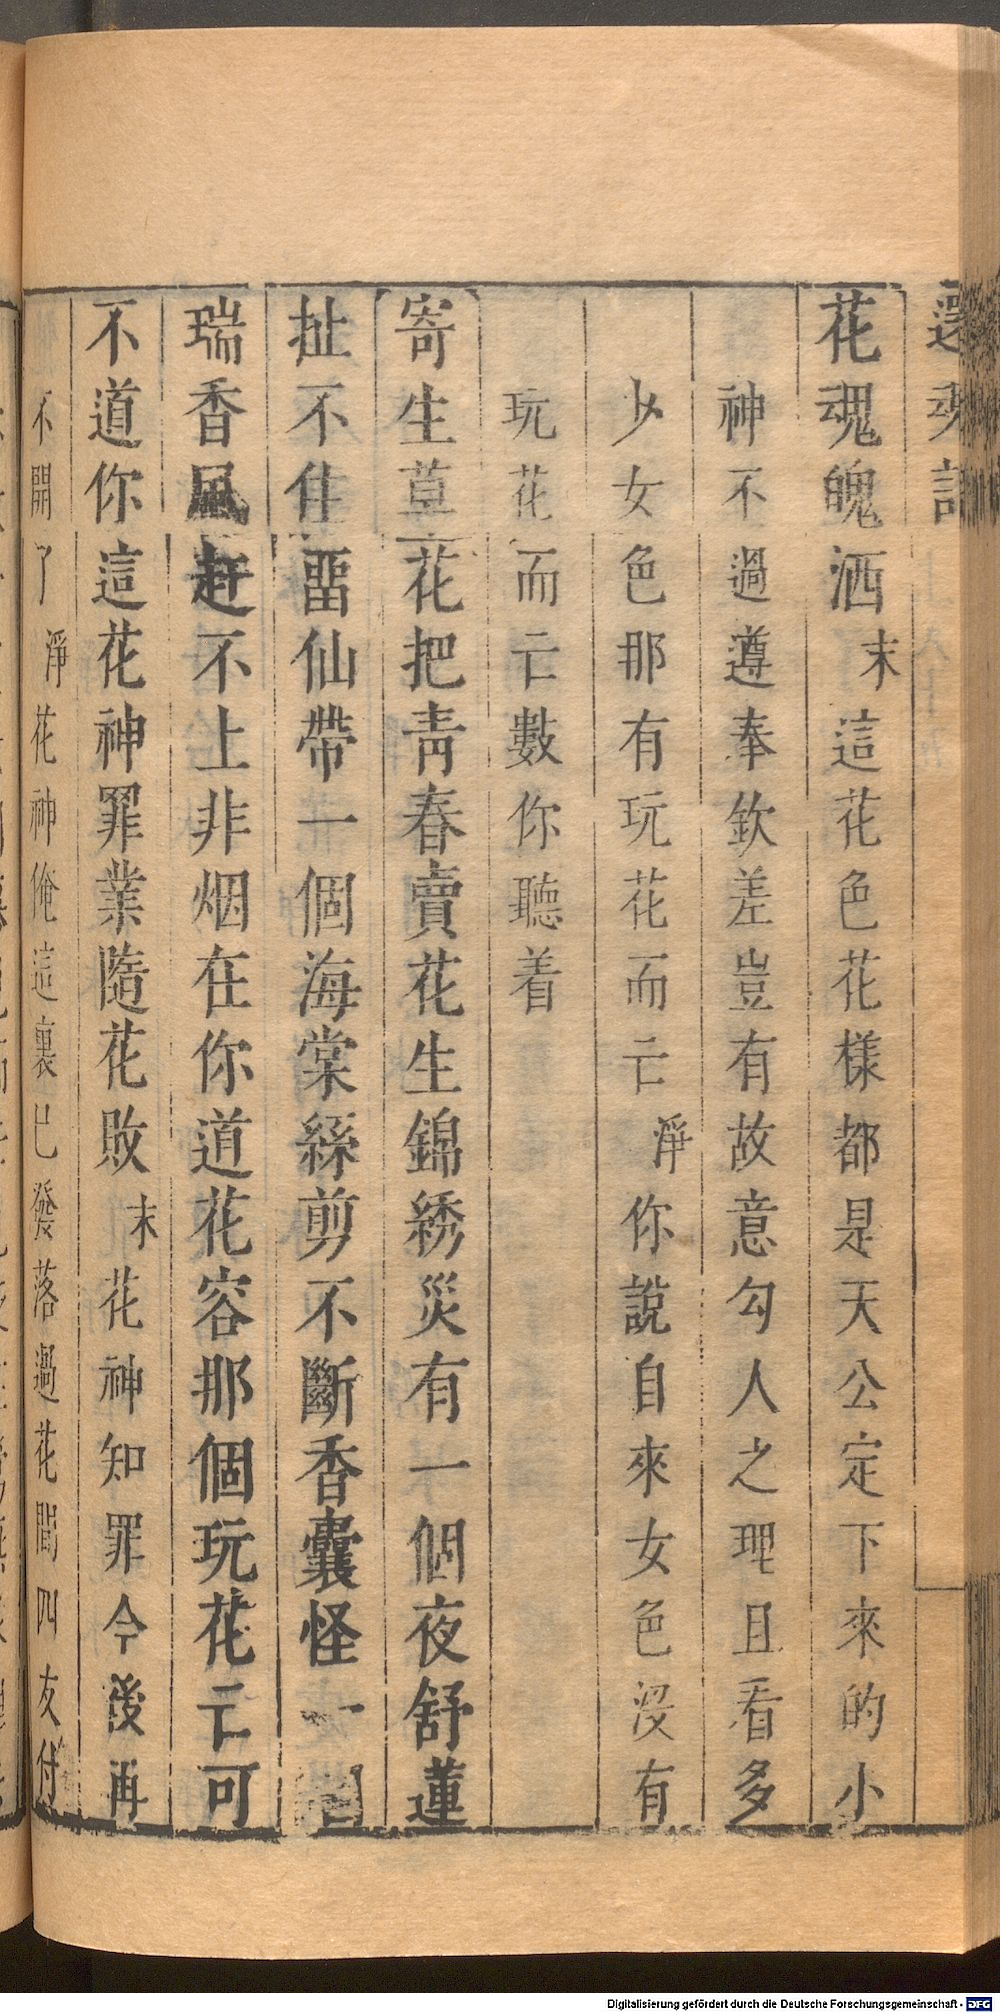 還魂記
花魂魄洒末這花色花樣都是天公定下來的小
神不過遵奉欽差豈有故意勾人之理且看多
少女色那有玩花而亡淨你說自來女色沒有
玩花而亡數你聽着
寄生草花把靑春賣花生錦綉災有一個夜舒蓮
扯不住畱仙帶一個海棠絲剪不斷香囊怪一個
瑞香風赶不上非烟在你道花容那個玩花亡可
不道你這花神罪業隨花敗末花神知罪今後再
不開了淨花神俺這裏已發落過花間四友付
Digitalisierung gefördert durch die Deutsche Forschungsgemeinschaft - DFG